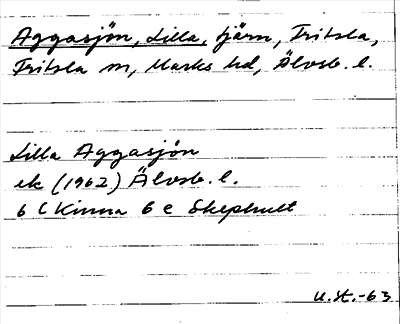 Aggasjön, Lilla, tjärn, Fritsla,
Fritsla sn, Marks hd, Älvsb. l.
Lilla Aggasjön
ek (1962) Älvsb. l.
6 C Kinna 6 e Skephult
U.St.-63